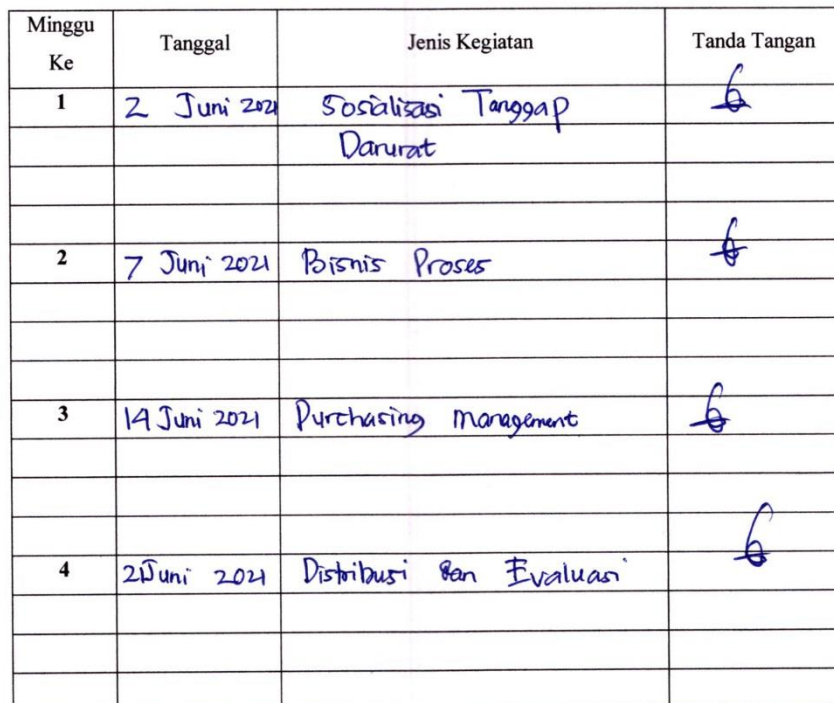 Minggu Ke Tanggal Jenis Kegiatan Tanda Tangan
1 2 Juni 2021 Sosialisasi Tanggap
Darurat
2 7 Juni 2021 Bisnis Proses
3 14 Juni 2021 Purchasing management
4 21 Juni 2021 Distribusi dan Evaluasi